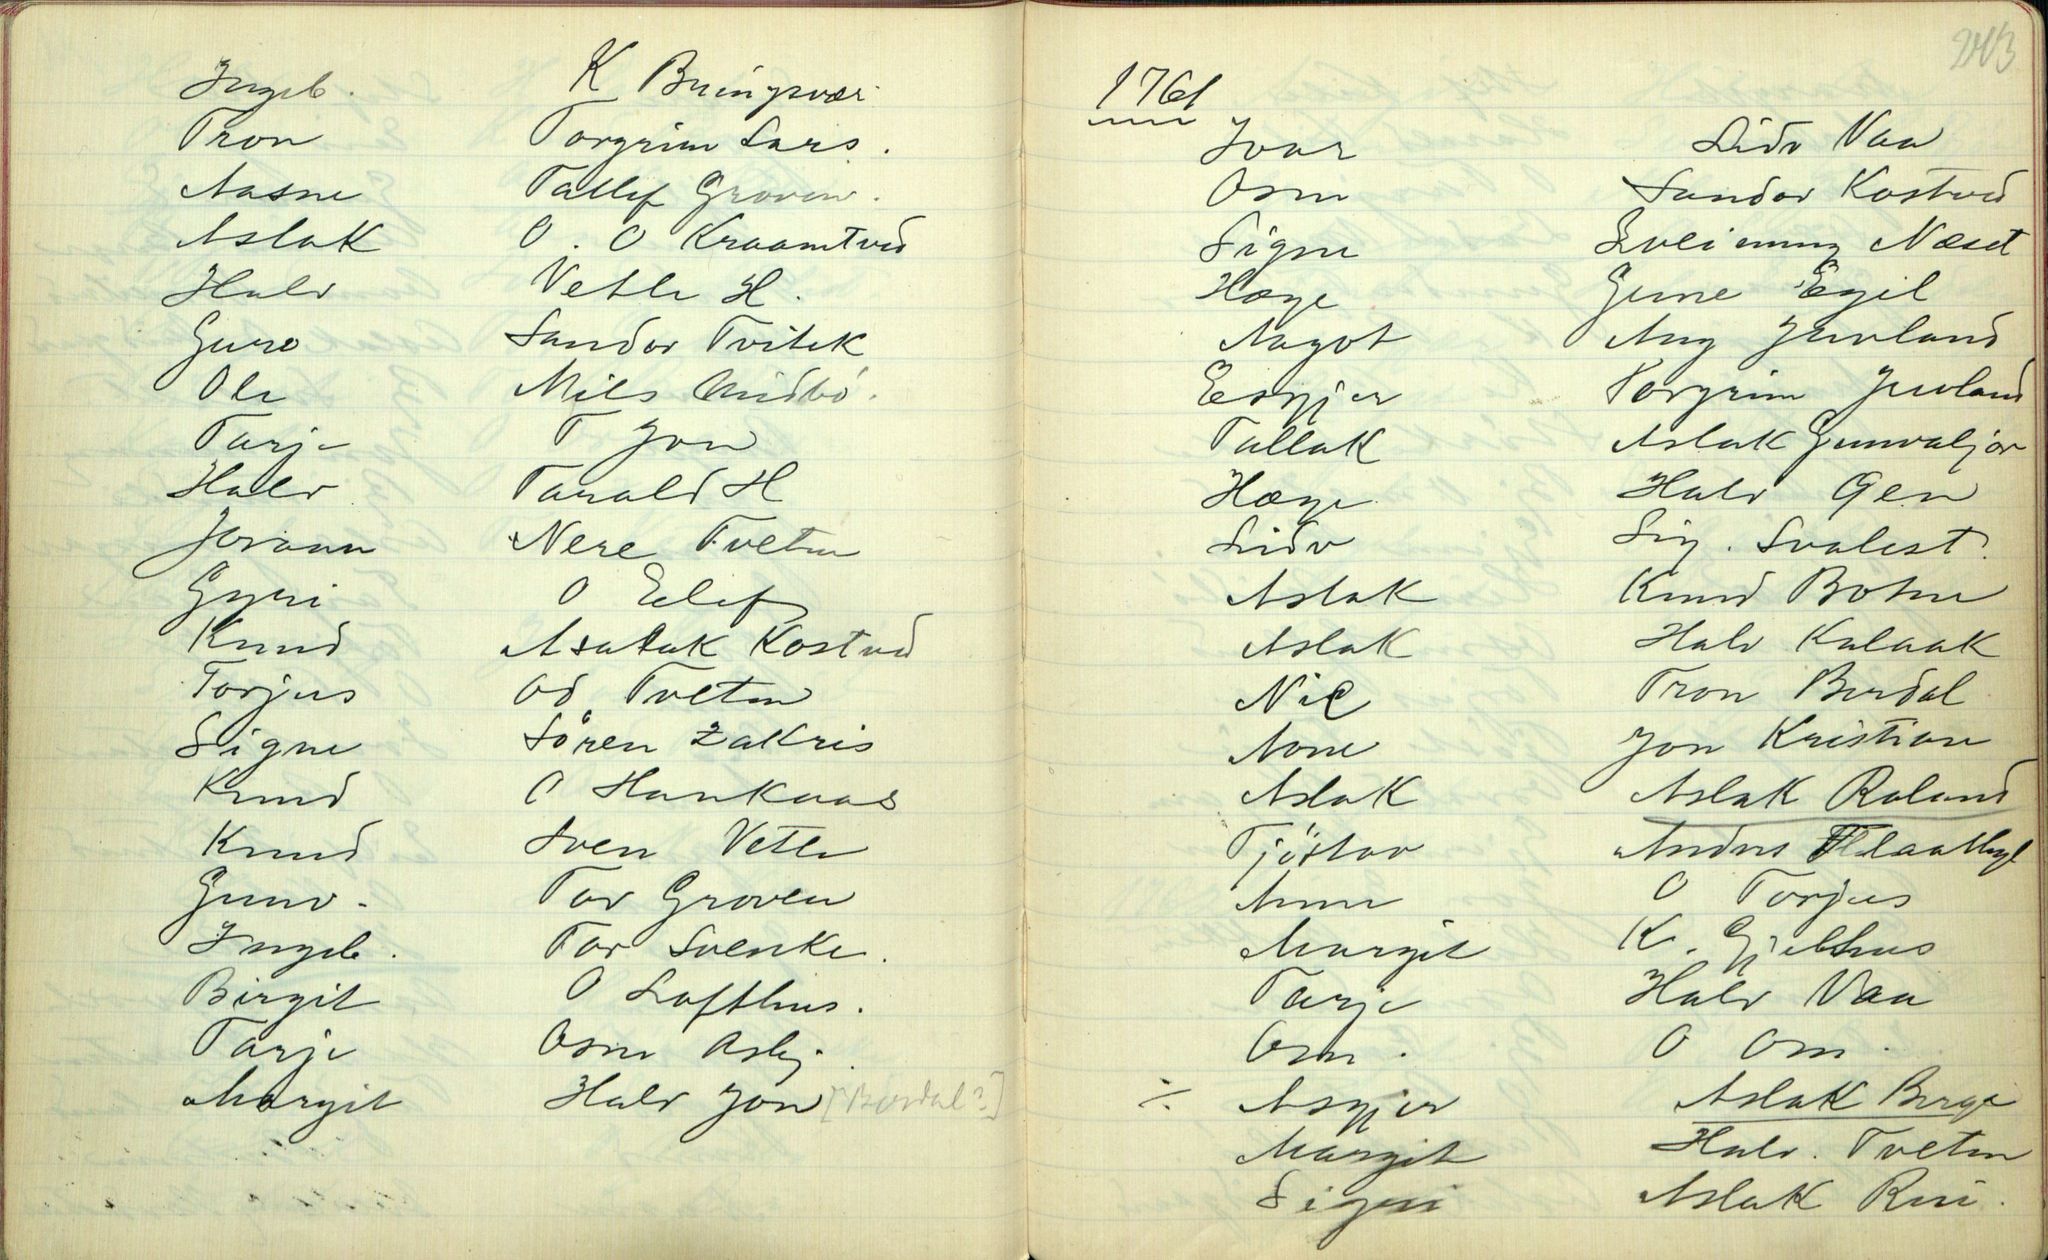 Ingeb. K Bringsvær
Tron Torgrim Lars.
Aasne Tallef Groven.
Aslak O. O Kraamtved
Halv Vetle H.
Guro Sandor Tvitek
Ole Nils Midbö.
Tarje T Jon
Halv Tarald H
Joraan Nere Tveten
Gyri O Eelef
Knud Asalak Kostved
Torjus Od Tveten
Signe Sören Zakris
Knud O Haukaas
Knud Sven Vetle
Gunv. Tov Groven
Ingeb. Tor Svenke.
Birgit O Lofthus.
Tarje Osm Asbj.
Margit Halv Jon [Berdal?]
243
1761
Ivar Lidv Vaa
Osm Sandor Kostved
Signe Sveinung Næset
Hæge Gune Egil
Aagot Aug Juvland
Esgjer Torgrim Juvland
Tallak Aslak Gunvaljor
Hæge Halv Gen
Lidv Sig. Svalest.
Aslak Knud Boten
Aslak Halv Kalaak
Nil Tron Berdal
Aone Jon Kristian
Aslak Aslak Roland
Tjöstov Andres Flaatbyl
Anne O Torjus
Margit K. Gjelhus
Tarje Halv Vaa
Osm. O Om.
÷ Asgjer Aslak Berge
Margit Halv. Tveten
Signi Aslak Rui.